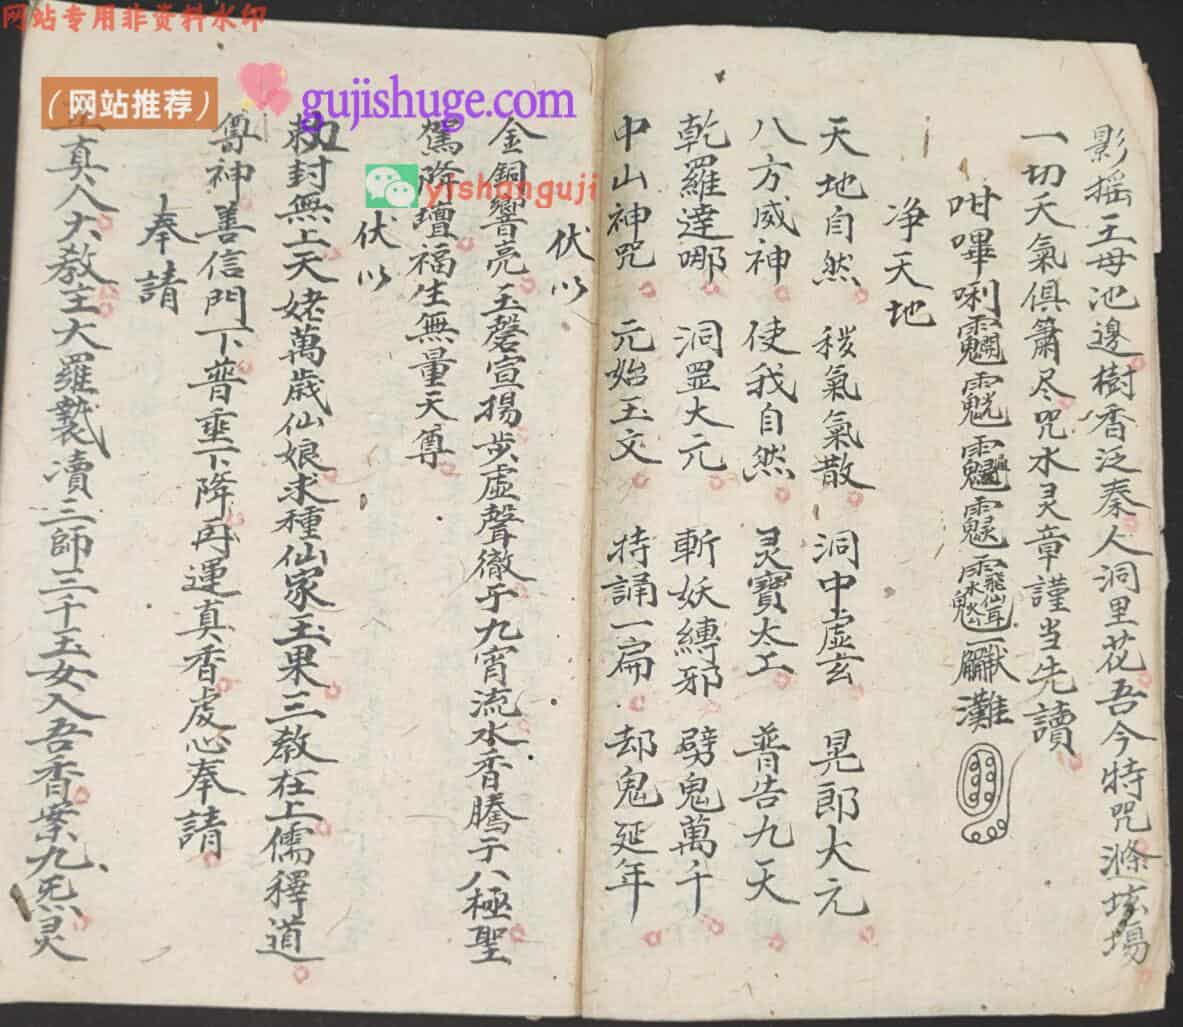 网站专用非资料水印
（网站推荐）
gujishuge.com
yishanguji
影摇王母池邊樹香泛秦人洞里花吾今特咒滌坛場
一切天氣俱箫尽咒水灵章謹当先讀
咁嗶唎
灘
净天地
天地自然 穢氣氣散 洞中虛玄 晃郎大元
八方威神 使我自然 灵寶太上 普告九天
乾羅達哪 洞罡大元 斬妖縛邪 劈鬼萬千
中山神咒 元始玉文 持誦一扁 却鬼延年
伏以
金銅響亮玉磬宣揚步虛聲徹于九宵流水香騰于八極聖
駕降壇福生無量天尊
伏以
敕封無上天姥萬歲仙娘求種仙家玉果三教在上儒釋道
尊神善信門下普垂下降再運真香虔心奉請
奉請
真人大教主大羅
三師三千玉女入吾香案九炁灵